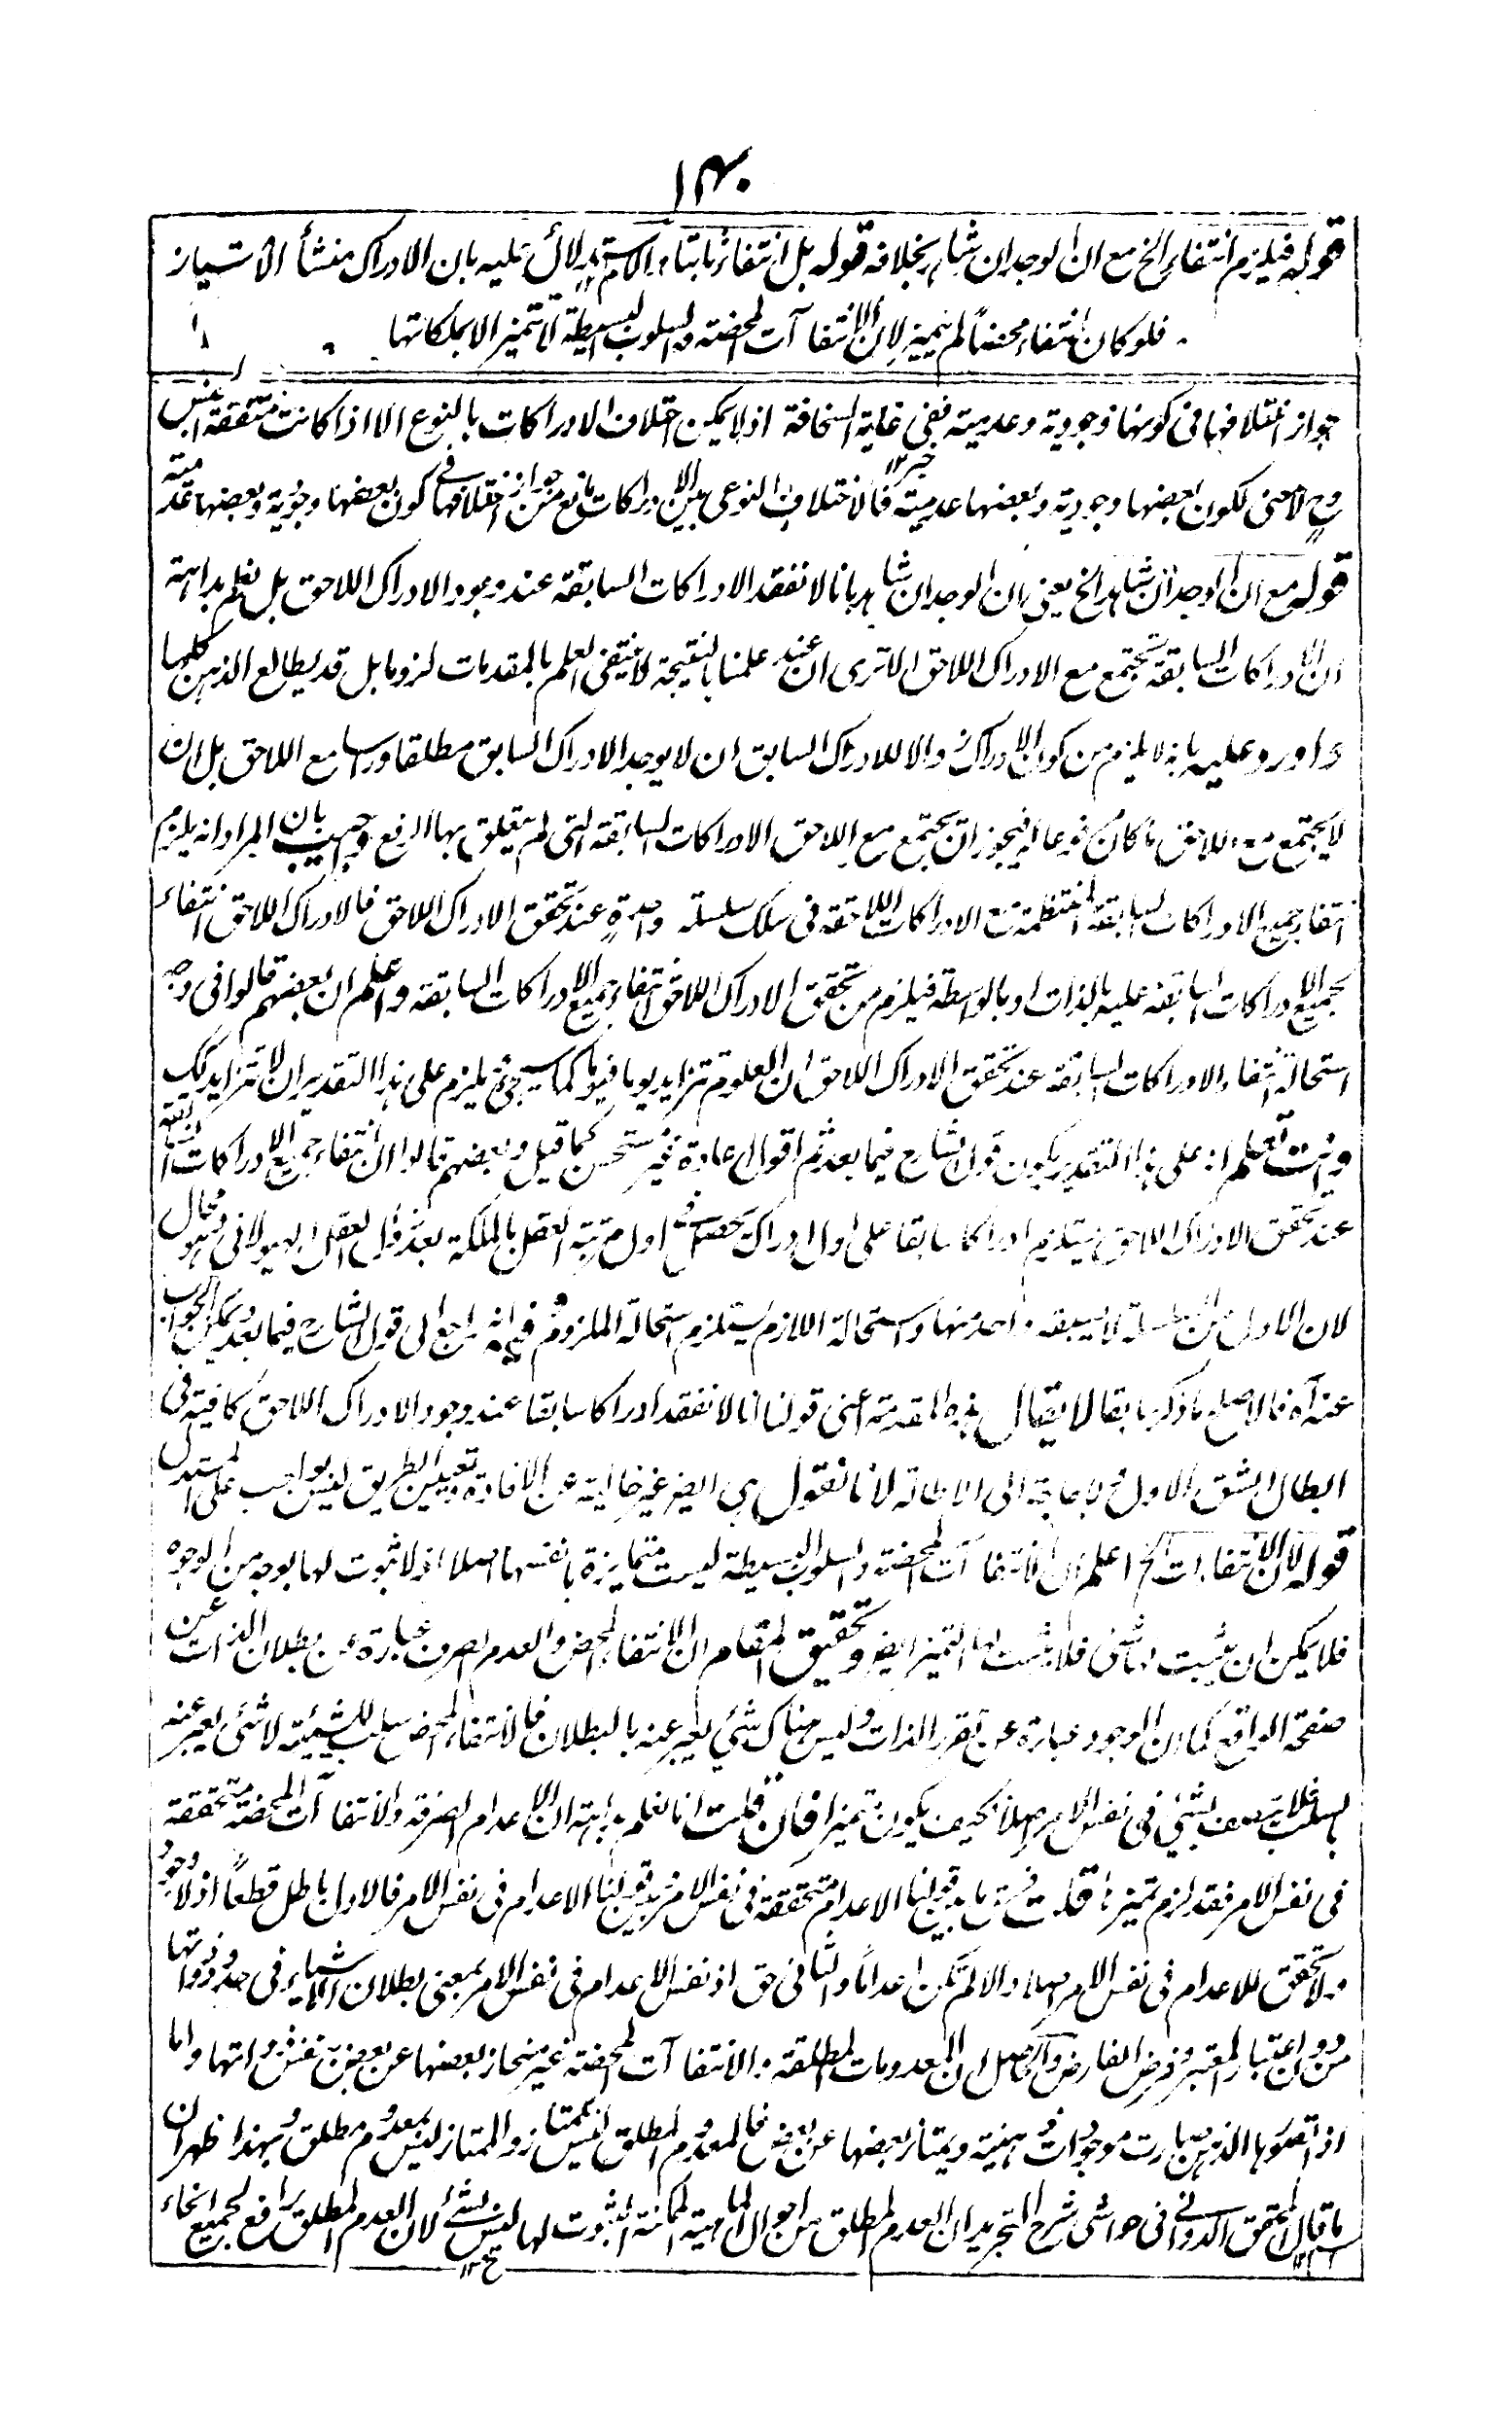 ١٤٠
قوله فيلزم انتفاءه الخ مع ان الوجدان شاهد بخلافه قوله بل انتفاءً ثابتا والاستدلال عليه بان الادراك منشأ الامتياز
فلو كان انتفاء محضاً لم يتميز لان الانتفاآت المحضة والسلوب البسيطة لا تتميز الا بملكاتها
جواز اختلافها فى كونها وجودية وعدمية ففى غاية السخافة اذ لا يمكن اختلاف الادراكات بالنوع الا اذا كانت متفقة الجنس
وح لا معنى لكون بعضها وجودية وبعضها عدمية فالاختلاف النوعى بين الادراكات مانع من جواز اختلافها فى كون بعضها وجودية وبعضها عدمية
قوله مع ان الوجدان شاهد الخ يعنى ان الوجدان شاهد بانا لا نفقد الادراكات السابقة عند وجود الادراك اللاحق بل نعلم بداهة
ان الادراكات السابقة تجتمع مع الادراك اللاحق الا ترى ان عند علمنا بالنتيجة لا ينتفى العلم بالمقدمات لزوما بل قد يطالع الذهن كلها
واورد عليه بانه لا يلزم من كون الادراك زوالا للادراك السابق ان لا يوجد الادراك السابق مطلقا وراسا مع اللاحق بل ان
لا يجتمع مع اللاحق ما كان رفعا له فيجوز ان يجتمع مع اللاحق الادراكات السابقة التى لم يتعلق بها الرفع واجيب بان المراد انه يلزم
انتفاء جميع الادراكات السابقة المنتظمة مع الادراكات اللاحقة فى سلك سلسلة واحدة عند تحقق الادراك اللاحق فالادراك اللاحق انتفاء
لجميع الادراكات السابقة عليه بالذات او بالواسطة فيلزم من تحقق الادراك اللاحق انتفاء جميع الادراكات السابقة واعلم ان بعضهم قالوا فى وجه
استحالة انتفاء الادراكات السابقة عند تحقق الادراك اللاحق ان العلوم تتزايد يوما فيوما كما سيجئ فيلزم على هذا التقدير ان لا تتزايد تلك
وانت تعلم انه على هذا التقدير يكون قول الشارح فيما بعد ثم اقول اعادة غير مستحسن كما قيل وبعضهم قالوا ان انتفاء جميع الادراكات السابقة
عند تحقق الادراك اللاحق يستلزم ادراكا سابقا على اول ادراك يحصل فى اول مرتبة العقل بالملكة بعد زوال العقل الهيولانى وهو محال
لان الاول من السلسلة لا يسبقه واحد منها واستحالة اللازم يستلزم استحالة الملزوم فيه انه راجع الى قول الشارح فيما بعد ويمكن الجواب
عنه آه فالاصلح ما ذكر سابقا لا يقال هذه المقدمة اعنى قولنا انا لا نفقد ادراكا سابقا عند وجود الادراك اللاحق كافية فى
ابطال الشق الاول فلا حاجة الى الاطالة لانا نقول هى ايضا غير خالية عن الافادة وتعيين الطريق ليس بواجب على المستدل
قوله لان الانتفاءات الخ اعلم ان الانتفاآت المحضة والسلوب البسيطة ليست متمايزة بانفسها اصلا اذ لا ثبوت لها بوجه من الوجوه
فلا يمكن ان يثبت لها شئ فلا يثبت لها التميز ايضا وتحقيق المقام ان الانتفاء المحض والعدم الصرف عبارة عن بطلان الذات عن
صفحة الواقع كما ان الوجود عبارة عن تقرر الذات وليس هناك شئ يعبر عنه بالبطلان فالانتفاء المحض سلب للشيئية لا شئ يعبر عنه
بالسلب فلا يتصف بشئ فى نفس الامر اصلا فكيف يكون تميزا فان قلت انا نعلم بداهة ان الاعدام الصرفة والانتفاآت المحضة متحققة
فى نفس الامر فقد لزم تميزها قلت فرق ما بين قولنا الاعدام متحققة فى نفس الامر وبين قولنا الاعدام فى نفس الامر فالاول باطل قطعاً اذ لا وجود
ولا تحقق للاعدام فى نفس الامر اصلا والا لم تكن اعداماً والثانى حق اذ نفس الاعدام فى نفس الامر بمعنى بطلان الاشياء فى حدود ذواتها
من دون اعتبار المعتبر وفرض الفارض والحاصل ان المعدومات المطلقة والانتفاآت المحضة غير منحاز بعضها عن بعض بنفس ذواتها واما
اذا تصورها الذهن صارت موجودات ذهنية ويمتاز بعضها عن بعض فالمعدوم المطلق ليس بممتاز والممتاز ليس بمعدوم مطلق وبهذا ظهر ان
ما قال المحقق الدوانى فى حواشى شرح التجريد ان العدم المطلق من احوال الماهية الممكنة الثبوت لها ليس بشئ لان العدم المطلق رافع لجميع انحاء